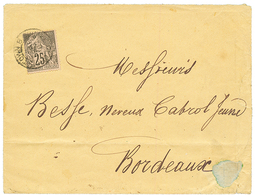 25
Messieurs
Besse, Neveux Cabrol Jeune
Bordeaux